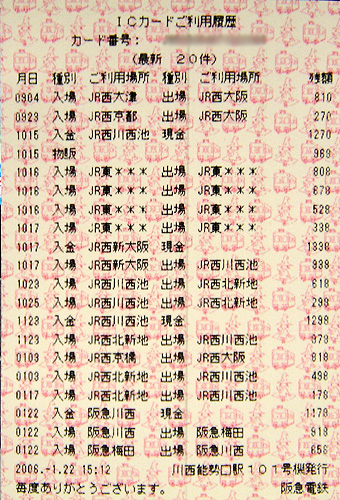 ICカードご利用履歴
カード番号:
(最新 20件)
月日 種別 ご利用場所 種別 ご利用場所 残額
0904 入場 JR西大津 出場 JR西大阪 810
0923 入場 JR西京都 出場 JR西大阪 270
1015 入金 JR西川西池 現金 1270
1015 物販 968
1016 入場 JR東*** 出場 JR東*** 808
1016 入場 JR東*** 出場 JR東*** 678
1016 入場 JR東*** 出場 JR東*** 528
1017 入場 JR東*** 出場 JR東*** 338
1017 入金 JR西新大阪 現金 1338
1017 入場 JR西新大阪 出場 JR西川西池 938
1023 入場 JR西川西池 出場 JR西北新地 618
1025 入場 JR西川西池 出場 JR西北新地 298
1123 入金 JR西川西池 現金 1298
1123 入場 JR西北新地 出場 JR西川西池 978
0103 入場 JR西京橋 出場 JR西大阪 818
0103 入場 JR西北新地 出場 JR西川西池 498
0117 入場 JR西北新地 出場 JR西川西池 178
0122 入金 阪急川西 現金 1178
0122 入場 阪急川西 出場 阪急梅田 918
0122 入場 阪急梅田 出場 阪急川西 658
2006.-1.22 15:12 川西能勢口駅101号機発行
毎度ありがとうございます。 阪急電鉄